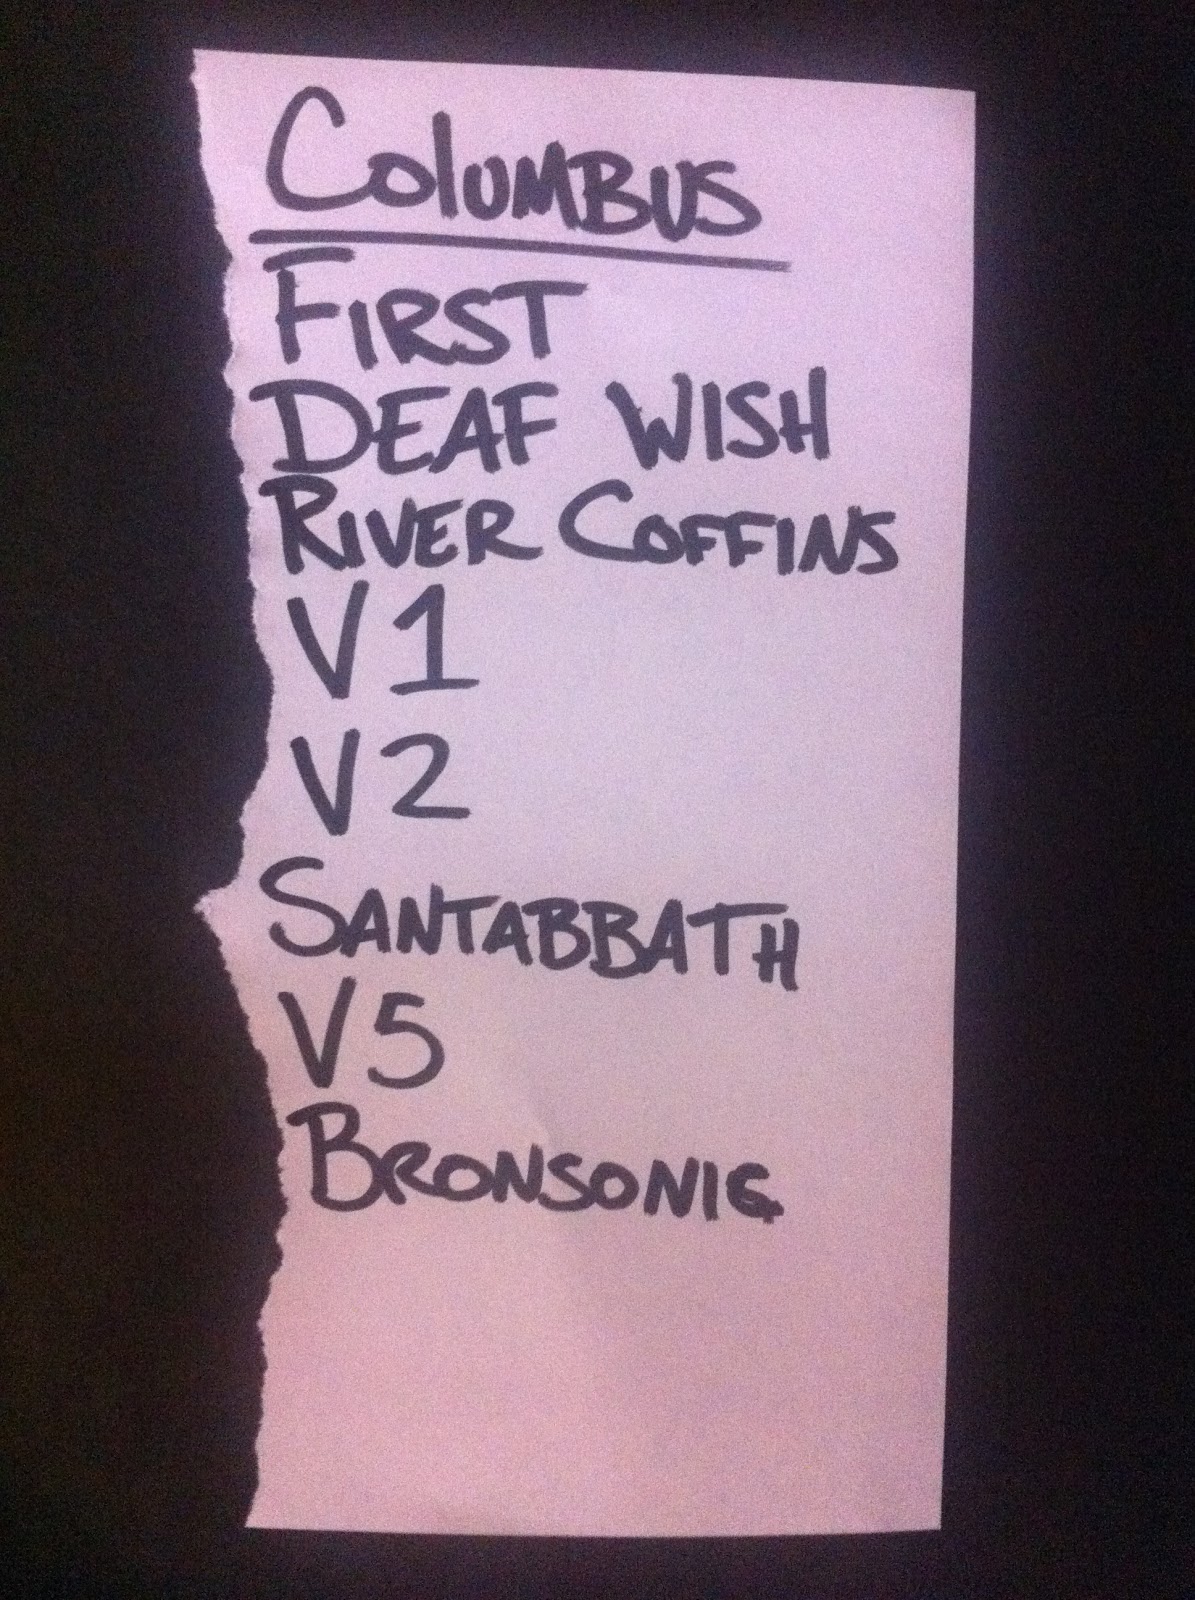 Columbus
First
Deaf Wish
River Coffins
V1
V2
Santabbath
V5
Bronsonic